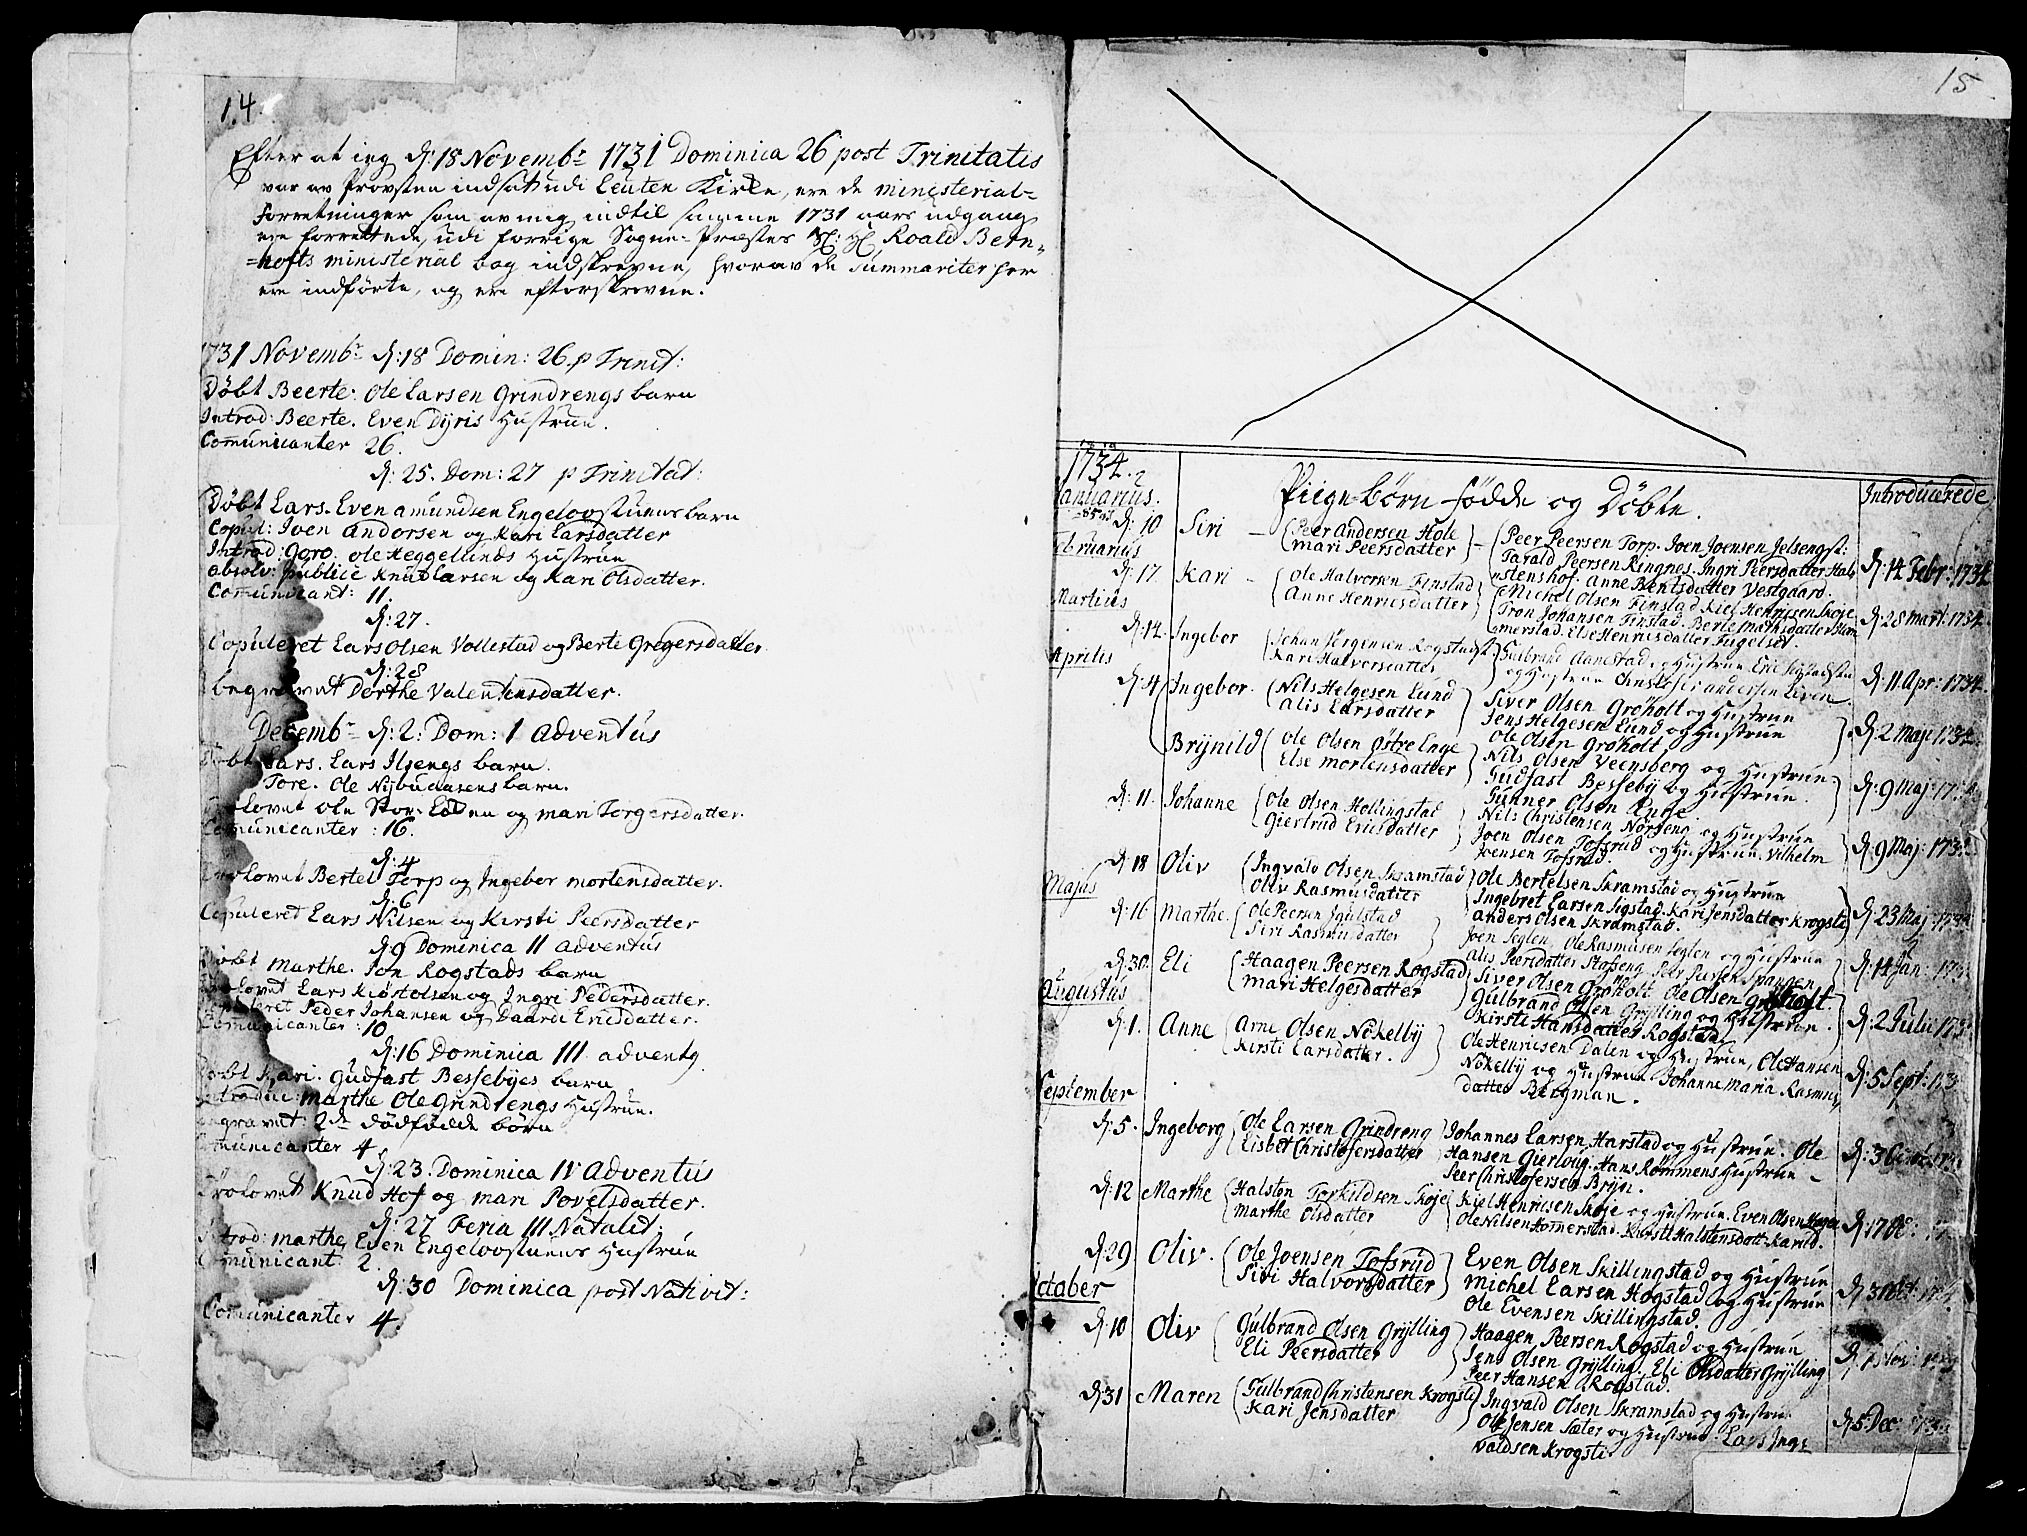 14.
Efter at ieg d: 18 Novembr 1731 Dominica 26 post Trinitatis
var av Provsten indsat udi Leuten Kirke, ere de ministerial-
Forretninger som av mig indtil samme 1731 aars udgang
ere forrettede, udi forrige Sogne-Præstes Roald Bern-
=hofts ministerial bog indskrevne, hvorav de summariter her
ere indførte, og ere efterskrevne.
1731 Novembr d: 18 Domin: 26. p Trinit:
Døbt Beerte. Ole Larsen Grindrengs barn
Introd: Beerte. Even Dÿris Hustrue.
Comunicanter 26.
d: 25. Dom: 27 p Trinitat:
Døbt Lars. Even Amundsen Engeloostuens barn
Copul: Joen Andorsen og Kari Larsdatter
Introd: Goro. Ole Heggelunds Hustrue
absolv: publicè Knud Larsen og Kari Olsdatter.
Comunicant: 11.
d: 27.
Copuleret Lars Olsen Vollestad og Berte Gregersdatter
d: 28
begravet Dorthe Valentinsdatter.
Decembr d: 2: Dom: 1 Adventus
Døbt Lars. Lars Ilsengs barn.
Tore. Ole Nÿbuaasens barn.
Trolovet Ole Stor-Løten og Mari Torgersdatter.
Comunicanter: 16.
d: 4
Trolovet Bertel Torp og Ingebor Mortensdatter.
d: 6
Copuleret Lars Nilsen og Kirsti Peersdatter
d: 9 Dominica II Adventus
Døbt Marthe. Jon Rogstads barn
Trolovet Lars Kiøstolsen og Ingri Pedersdatter.
Copuleret Peder Johansen og Daardi Ericsdatter.
Comunicanter: 10
d: 16 Dominica III. advent
Døbt Kari. Gudfast Bessebÿes barn
Introduc: Marthe Ole Grindrengs Hustrue.
begravet 2de dødfødde børn
Comunicanter 4
d: 23. Dominica IV Adventus
Trolovet Knud Hof og Mari Povelsdatter.
d: 27 Feria III Natalit:
Introd: Marthe Even Engeloostuens Hustrue
Comunicant: 2
d: 30 Dominica post Nativit:
Comunicanter 4.
15
1734.
Januarius. Piige-børn fødde og Døbte. Introducerede
d: 10 Siri - Peer Andersen Hole
Mari Peersdatter
Peer Peersen Torp. Joen Joensen Jelsengst:
Tarald Peersen Ringnes. Ingri Peersdatter Hals
stenshof. Anne Bentsdatter Vestgaard.
d: 14 Febr: 1734
Februarius
d: 17 Kari - Ole Halvorsen Finstad
Anne Henricsdatter
Michel Olsen Finstad. Kiel Henricsen Skøje
Tron Johansen Finstad. Berte Mathisdatter
merstad. Else Henricsdatter Fugelset.
d: 28 Mart: 1734
Martius
d: 14. Ingebor Johan Jørgensen Rogstad
Kari Halvorsdatter
Gulbrand Aanestad og Hustrue. Eric
og Hustrue Christofer Andersen
d: 11 Apr: 1734
Aprilis
d: 4 Ingebor. Nils Helgesen Lund
Alis Larsdatter
Siver Olsen Grøholt og Hustrue
Jens Helgesen Lund og Hustrue
Ole Olsen Grøholt.
d: 2 Maji 1734
Brÿnild Ole Olsen Østre Enge
Else Mortensdatter
Nils Olsen Veensberg og Hustrue
Gudfast Bessebÿ og Hustrue.
Gunner Olsen Enge.
d: 9 Maj: 1734
d: 11. Johanne Ole Olsen Hollingstad
Giertrud Ericsdatter
Nils Christensen Nørseng og Hustrue
Joen Olsen Tofsrud og Hustrue. Vilhelm
Joensen Tofsrud.
d: 9 Maj: 173
d: 18 Oliv Ingvald Olsen Skramstad
Oliv Rasmusdatter
Ole Bertelsen Skramstad og Hustrue
Ingebret Larsen Sigstad. Kari Jensdatter Krogstie
Anders Olsen Skramstad.
d: 23 Maj: 1734
Majus
d: 16 Marthe. Ole Peersen Igulstad
Siri Rasmusdatter
Joen Seglen, Ole Rasmusen Seglen og Hustrue
Alis Peersdatter Stafseng. Peer Iversen Spangen
d: 14 Jun: 173
d: 30. Eli Haagen Peersen Rogstad
Mari Helgesdatter
Siver Olsen Grøholt. Ole Olsen Grøholt
Gulbrand Olsen Grÿlling og Hustrue.
Kirsti Hansdatter Rogstad.
d: 2 Julii 173
Augustus
d: 1. Anne Arne Olsen Nøkelbÿ
Kirsti Larsdatter.
Ole Henricsen Dalen og Hustrue, Ole Hansen
Nøkelbÿ og Hustrue. Johanne Maria Rasmus
datter Bergman.
d: 5 Sept: 173
September
d: 5. Ingeborg Ole Larsen Grindreng
Lisbet Christofersdatter
Johannes Larsen Harstad og Hustrue. Ole
Hansen Gierloug. Hans Rømmens Hustrue
Peer Christofersen Brÿn.
d: 3
d: 12 Marthe Halsten Torkildsen Skøje
Marthe Olsdatter
Kiel Henricsen Skøje og Hustrue. Even Olsen
Ole Nilsen Hømerstad. Kirsti Halstensdatt: Karud.
d: 17
d: 29 Oliv. Ole Joensen Tofsrud
Siri Halvorsdatter
Even Olsen Skillingstad og Hustrue
Michel Larsen Hogstad og Hustrue
Ole Evensen Skillingstad.
d: 31
October
d: 10 Oliv Gulbrand Olsen Grÿlling
Eli Peersdatter
Haagen Peersen Rogstad og Hustrue
Jens Olsen Grÿlling. Eli Olsdatter Grÿlling
Peer Hansen Rogstad.
d:
d: 31 Maren Gulbrand Christensen Krogstie
Kari Jensdatter
Ingvald Olsen Skramstad og Hustrue
Ole Jensen Sæter og Hustrue. Lars Ing
valdsen Krogstie
d: 5. Dec: